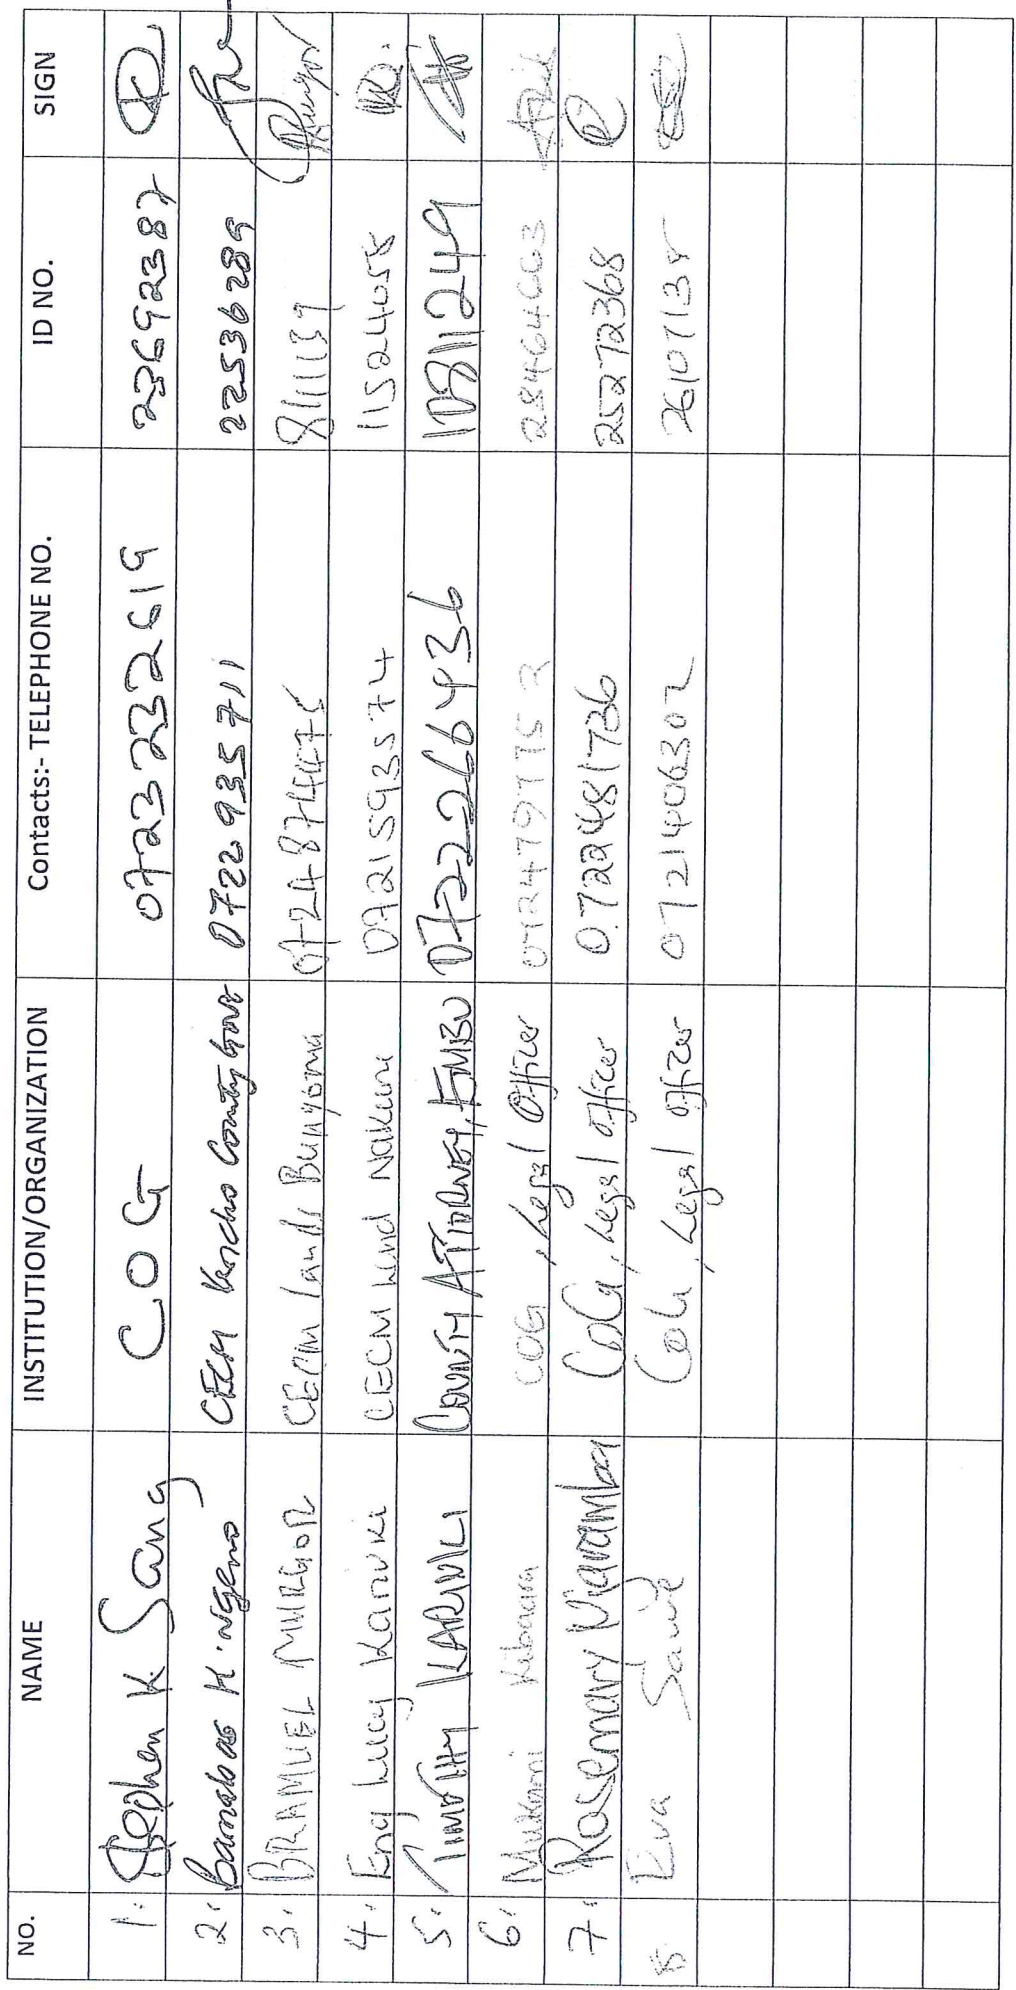 NO. NAME INSTITUTION/ORGANIZATION Contacts:- TELEPHONE NO. ID NO. SIGN
1. Stephen K. Sang COG 0723232619 22692387
2. Barnabas K. Ngeno CECM Kericho County Govt 0722935711 22536289
3. BRAMUEL MURGOR CECM Lands Bungoma 8111139
4. Eng Lucy Kariuki CECM Land Nakuru 0721593574 11524058
5. TIMOTHY KARIUKI COUNTY ATTORNEY, EMBU 0722266436
6. Mukami Kibaara COG, Legal Officer 28464663
7. Rosemary Njaramba CoG, Legal Officer 0722481736 25272368
8 Eva Sawe CoG, Legal Officer 0721406302 26107138